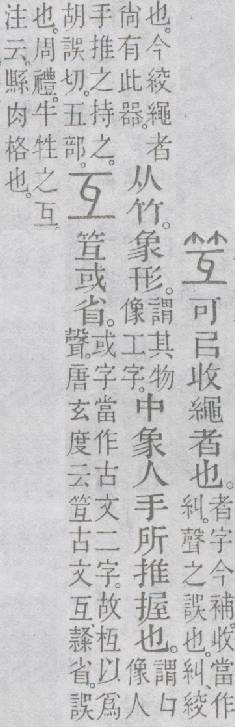 䇘 可㠯收繩者也。者字今補。收當作糾。聲之誤也。糾、絞
也。今絞繩者尚有此器。从竹。象形。謂其物像工字。中象人手所推握也。謂像人
手推之持之。胡誤切。五部。互 䇘或省。或字當作古文二字。故枑以爲聲。唐玄度云䇘古文互。隸省。誤
也。周禮。牛牲之互注云。縣肉格也。